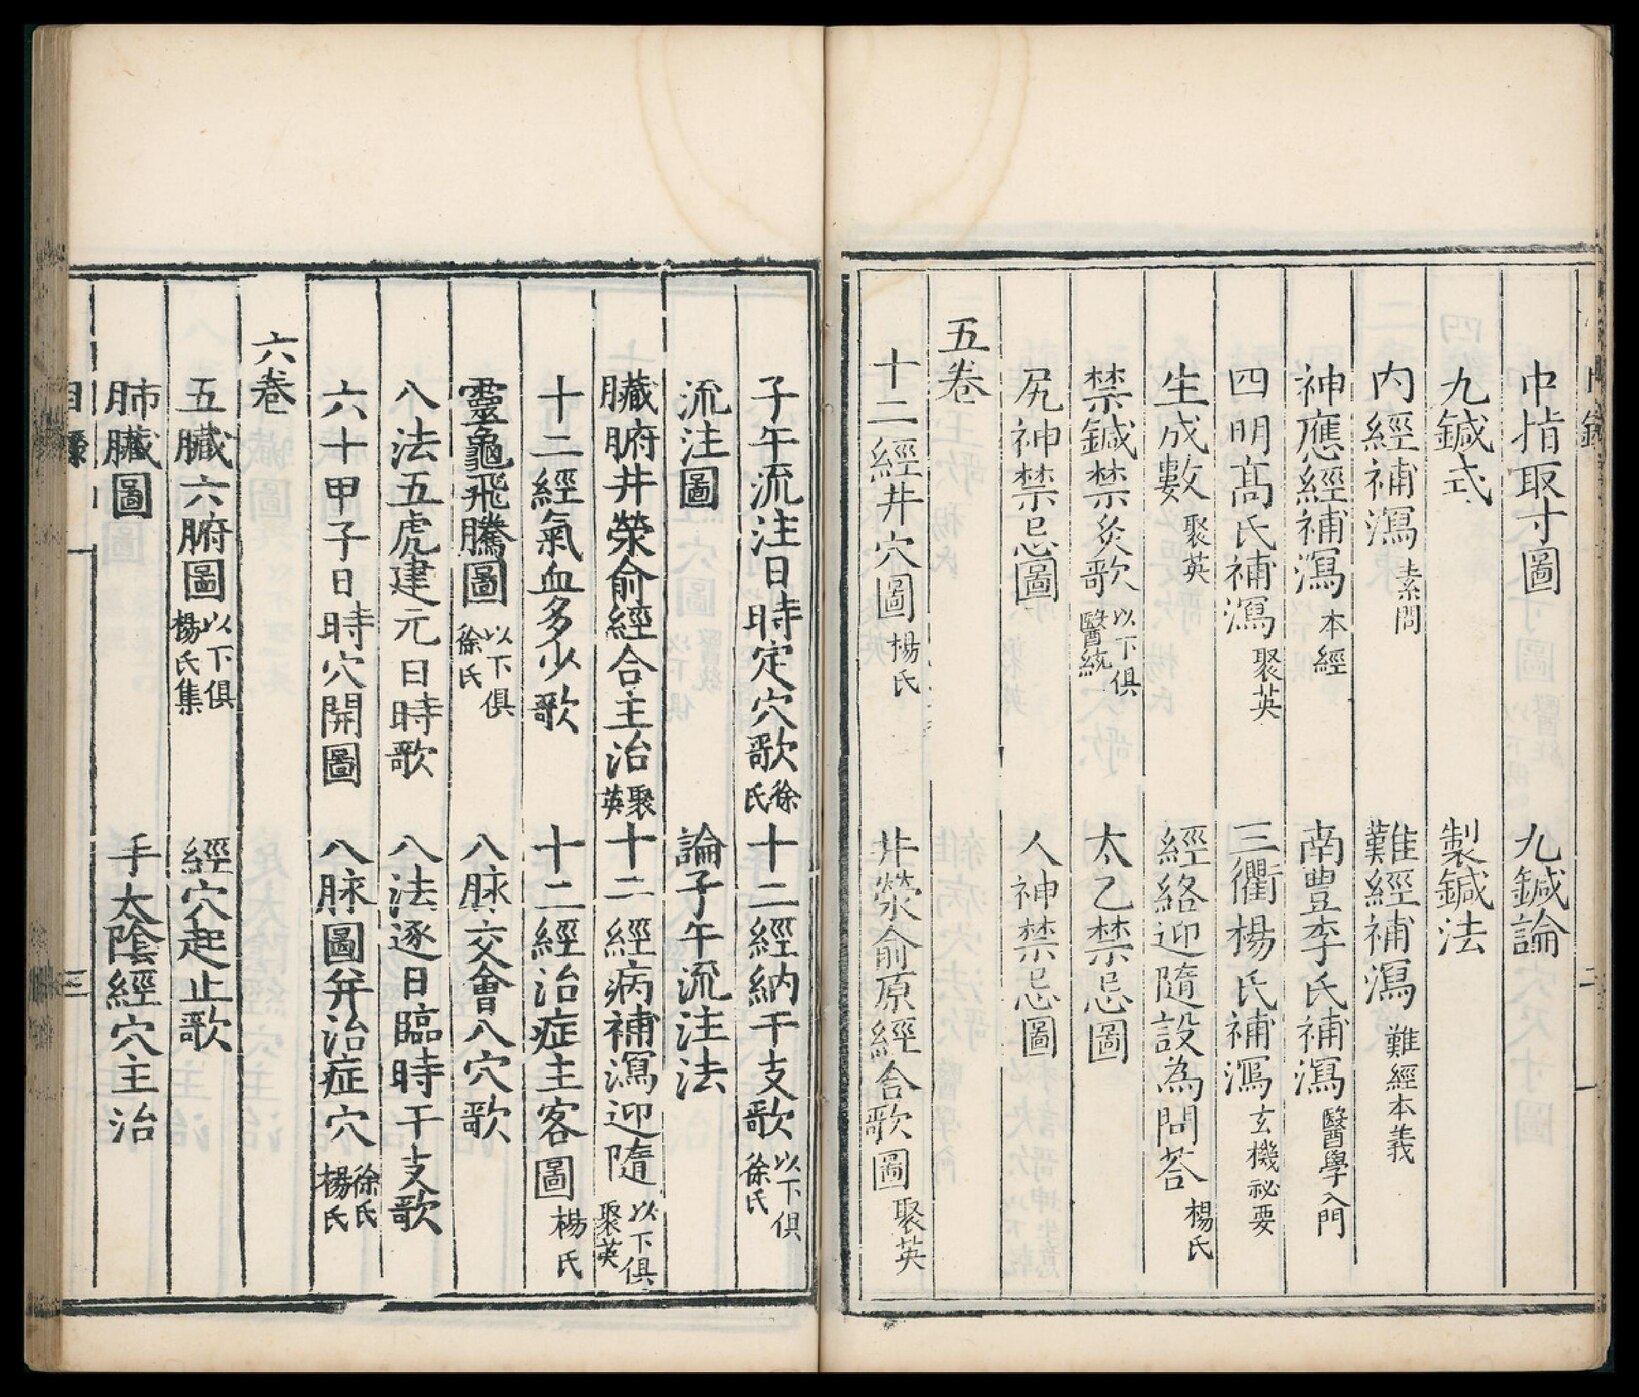 中指取寸圖　九鍼論
九鍼式　製鍼法
內經補瀉 素問　難經補瀉 難經本義
神應經補瀉 本經　南豐李氏補瀉 醫學入門
四明高氏補瀉 聚英　三衢楊氏補瀉 玄機祕要
生成數 聚英　經絡迎隨設為問荅 楊氏
禁鍼禁灸歌 以下俱醫統　太乙禁忌圖
尻神禁忌圖　人神禁忌圖
五卷
十二經井穴圖 楊氏　井滎俞原經合歌圖 聚英
子午流注日時定穴歌 徐氏　十二經納干支歌 以下俱徐氏
流注圖　論子午流注法
臟腑井滎俞經合主治 聚英　十二經病補瀉迎隨 以下俱聚英
十二經氣血多少歌　十二經治症主客圖 楊氏
靈龜飛騰圖 以下俱徐氏　八脉交會八穴歌
八法五虎建元日時歌　八法逐日臨時干支歌
六十甲子日時穴開圖　八脉圖并治症穴 徐氏楊氏
六卷
五臟六腑圖 以下俱楊氏集　經穴起止歌
肺臟圖　手太陰經穴主治
目錄
三